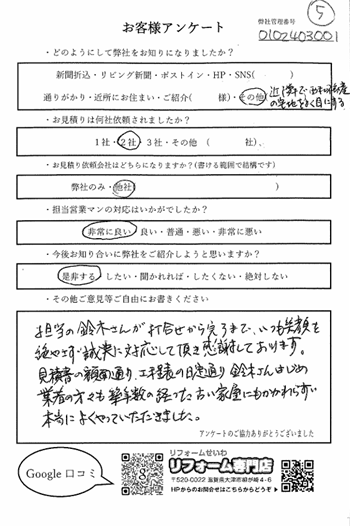 お客様アンケート
弊社管理番号
⑤
0102403001
・どのようにして弊社をお知りになりましたか？
新聞折込・リビング新聞・ポストイン・HP・SNS(　　　)
通りがかり・近所にお住まい・ご紹介(　　　様)・その他
・お見積りは何社依頼されましたか？
1社・2社・3社・その他（　　　社）、
・お見積り依頼会社はどちらになりますか？(書ける範囲で結構です)
弊社のみ・他社(　　　)
・担当営業マンの対応はいかがでしたか？
非常に良い・良い・普通・悪い・非常に悪い
・今後お知り合いに弊社をご紹介しようと思いますか？
是非する・したい・聞かれれば・したくない・絶対しない
・その他ご意見等ご自由にお書きください
担当の鈴木さんが打合せから完了まで、いつも笑顔を
絶やさず誠実に対応して頂き感謝しております。
見積書の額面通り、工程表の日程通り鈴木さんはじめ
業者の方々も築年数の経った古い家屋にもかかわらず
本当によくやっていただきました。
アンケートのご協力ありがとうございました
Google 口コミ
リフォームせいわ
リフォーム専門店
〒520-0022 滋賀県大津市柳が崎4-6
HPからのお問合せはこちらからどうぞ